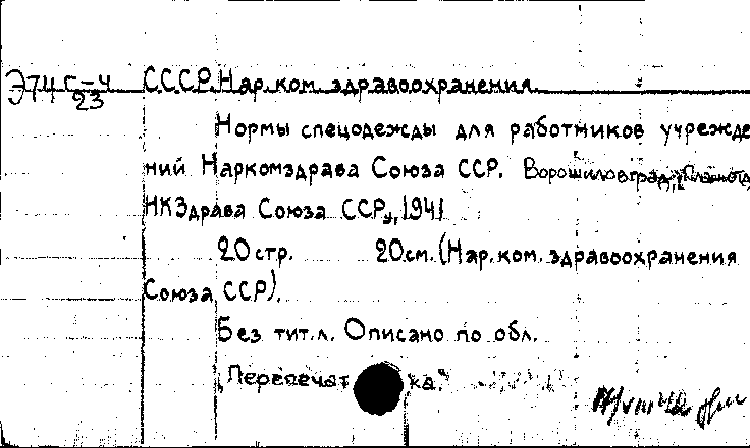 Э74 Г-4 С.С.С.Р. Нар.ком. здравоохранения.
23
Нормы спецодежды для работников учрежде
ний Наркомздрава Союза ССР. Ворошиловград,
НКЗдрава Союза ССР, 1941
20 стр. 20 см. (Нар.ком. здравоохранения
Союза ССР).
Без тит.л. Описано по обл.
"Перепечатка."